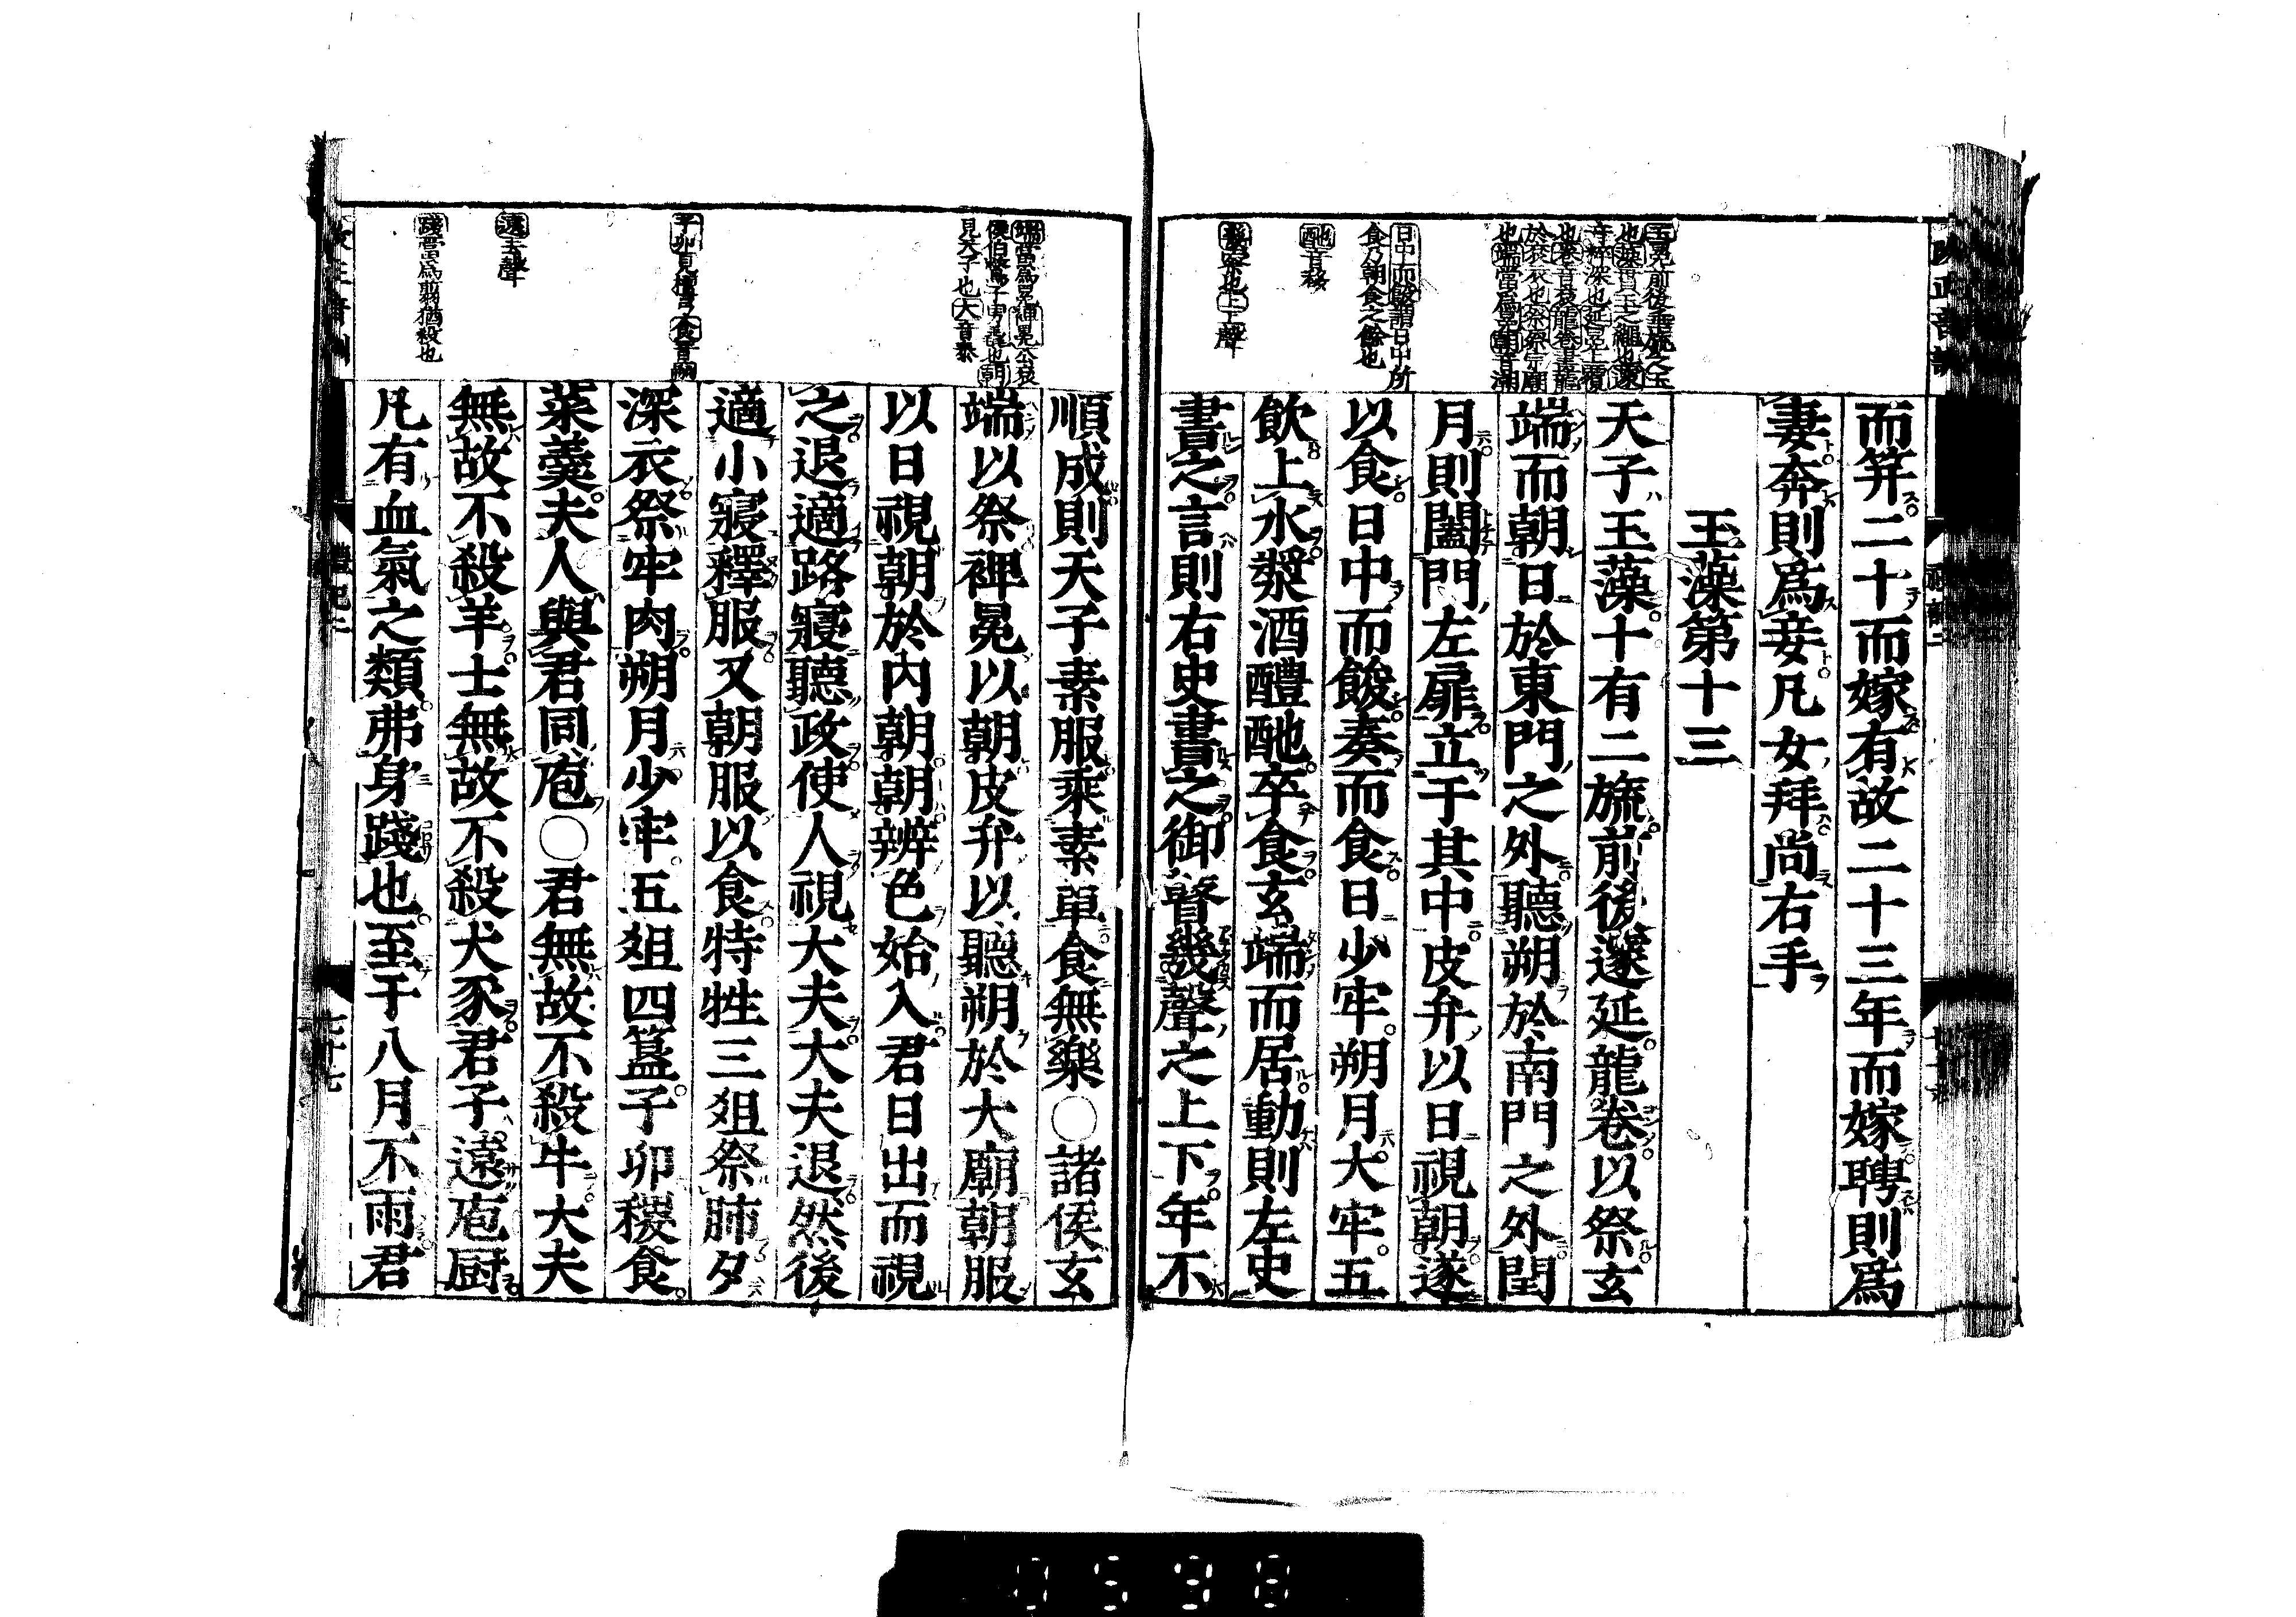 而笄二十而嫁有故二十三年而嫁聘則爲
妻奔則爲妾凡女拜尚右手
玉藻第十三
天子玉藻十有二旒前後邃延龍卷以祭玄
端而朝日於東門之外聽朔於南門之外閏
月則闔門左扉立于其中皮弁以日視朝遂
以食日中而餕奏而食日少牢朔月大牢五
飲上水漿酒醴酏卒食玄端而居動則左史
書之言則右史書之御瞽幾聲之上下年不
順成則天子素服乘素車食無樂○諸侯玄
端以祭裨冕以朝皮弁以聽朔於大廟朝服
以日視朝於內朝朝辨色始入君日出而視
之退適路寢聽政使人視大夫大夫退然後
適小寢釋服又朝服以食特牲三俎祭肺夕
深衣祭牢肉朔月少牢五俎四簋子卯稷食
菜羹夫人與君同庖○君無故不殺牛大夫
無故不殺羊士無故不殺犬豕君子遠庖厨
凡有血氣之類弗身踐也至于八月不雨君
日中而餕謂日中所
食乃朝食之餘也
酏音移
幾察也上上聲
見天子也大音泰
子卯見檀弓食音嗣
遠去聲
踐當爲翦猶殺也